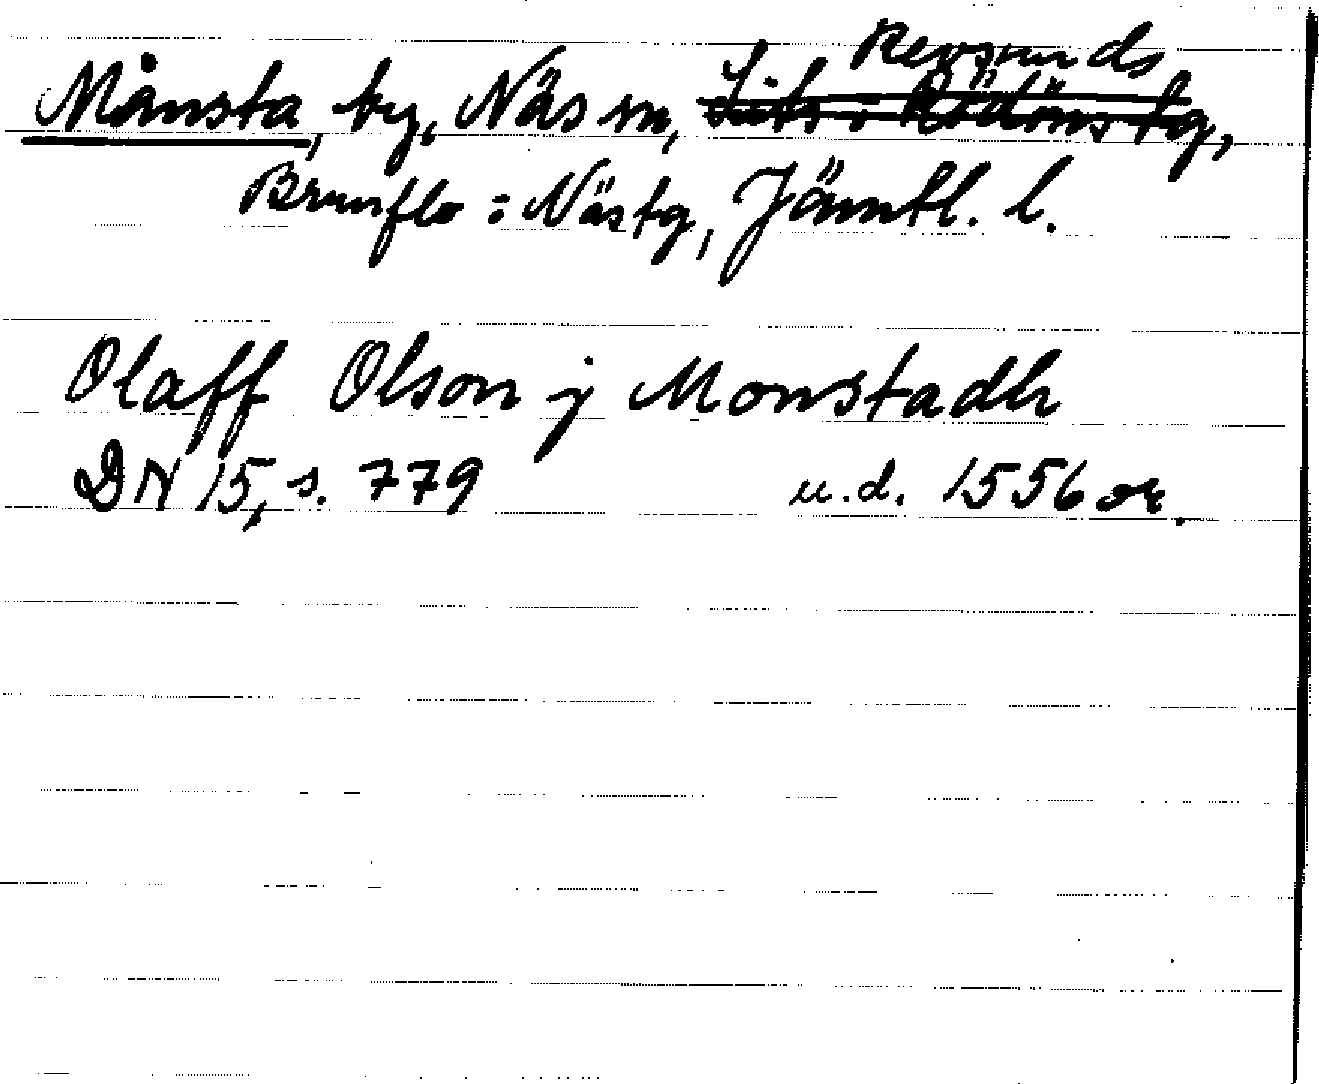 Revsunds
Månsta, by, Näs sn, Lits o Rödöns tg,
Brunflo o Näs tg, Jämtl. l.
Olaff Olson j Monstadh
DN 15, s. 779 u.d. 1556 or.